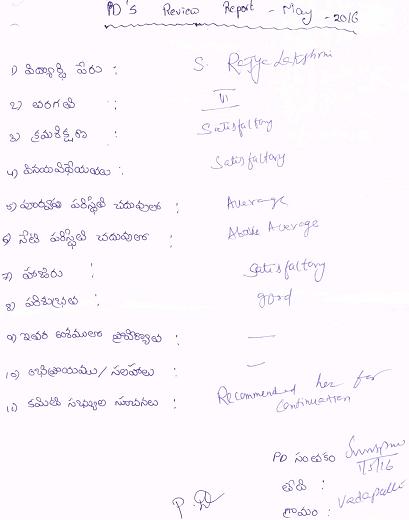 PD's Review Report - May - 2016
1) విద్యార్థి పేరు : S. Rajya Lakshmi
2) తరగతి : VI
3) క్రమశిక్షణ : Satisfactory
4) వినయవిధేయతలు : Satisfactory
5) పూర్వపు పరిస్థితి చదువులో : Average
6) నేటి పరిస్థితి చదువులో : Above Average
7) హాజరు : Satisfactory
8) పరిశుభ్రత : good
9) ఇతర అంశములలో ప్రావీణ్యత : —
10) అభిప్రాయము/సలహాలు : —
11) కమిటీ సభ్యుల సూచనలు : Recommended her for
continuation
PD సంతకం
1/5/16
తేది :
గ్రామం : Vadapalli